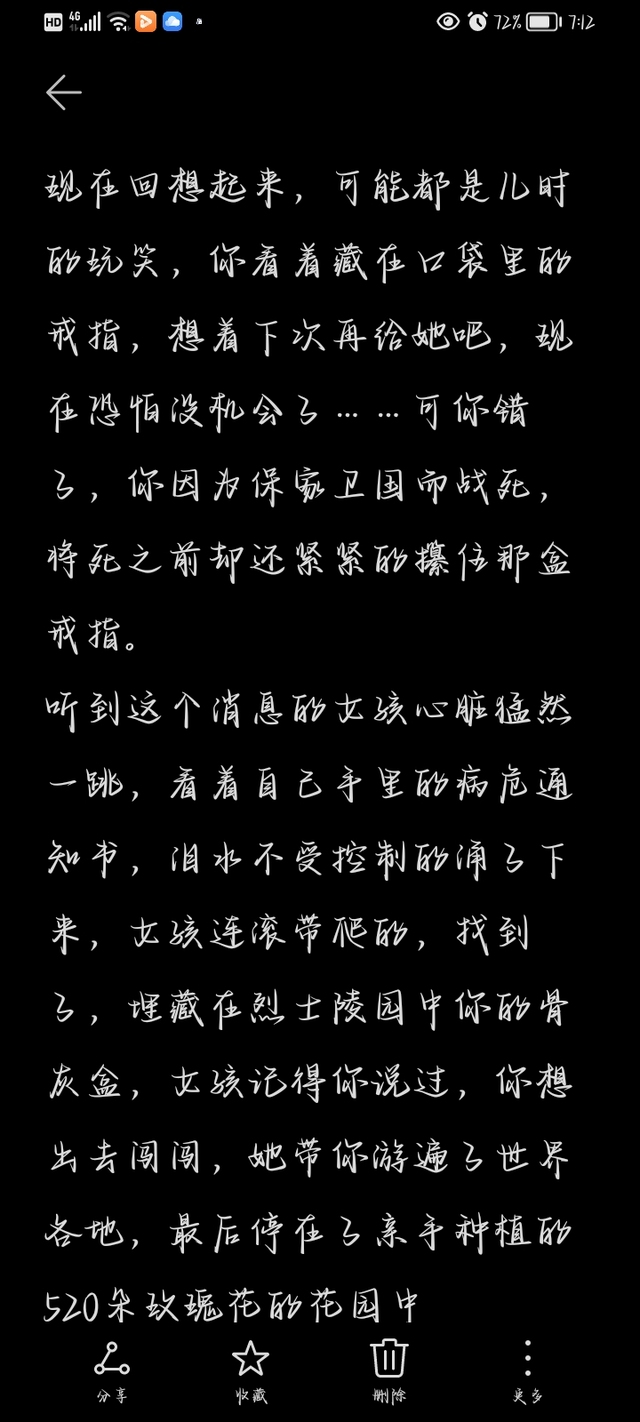 HD 4G 72% 7:12
现在回想起来，可能都是儿时
的玩笑，你看着藏在口袋里的
戒指，想着下次再给她吧，现
在恐怕没机会了……可你错
了，你因为保家卫国而战死，
将死之前却还紧紧的攥住那盒
戒指。
听到这个消息的女孩心脏猛然
一跳，看着自己手里的病危通
知书，泪水不受控制的涌了下
来，女孩连滚带爬的，找到
了，埋藏在烈士陵园中你的骨
灰盒，女孩记得你说过，你想
出去闯闯，她带你游遍了世界
各地，最后停在了亲手种植的
520朵玫瑰花的花园中
分享 收藏 删除 更多